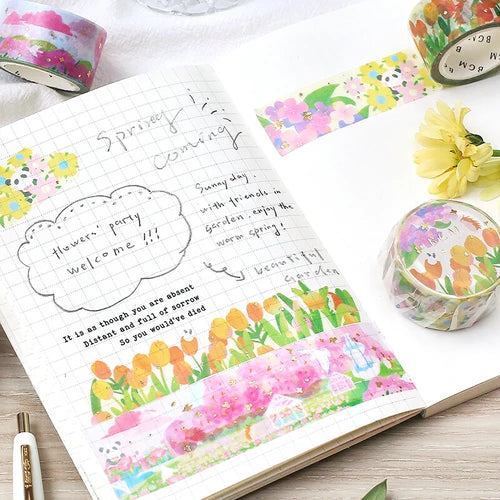 Spring
coming
Sunny day.
with friends in
garden, enjoy the
warm spring!
flowers' party
welcome!!!
beautiful
garden
It is as though you are absent
Distant and full of sorrow
So you would've died
BGM
BGM